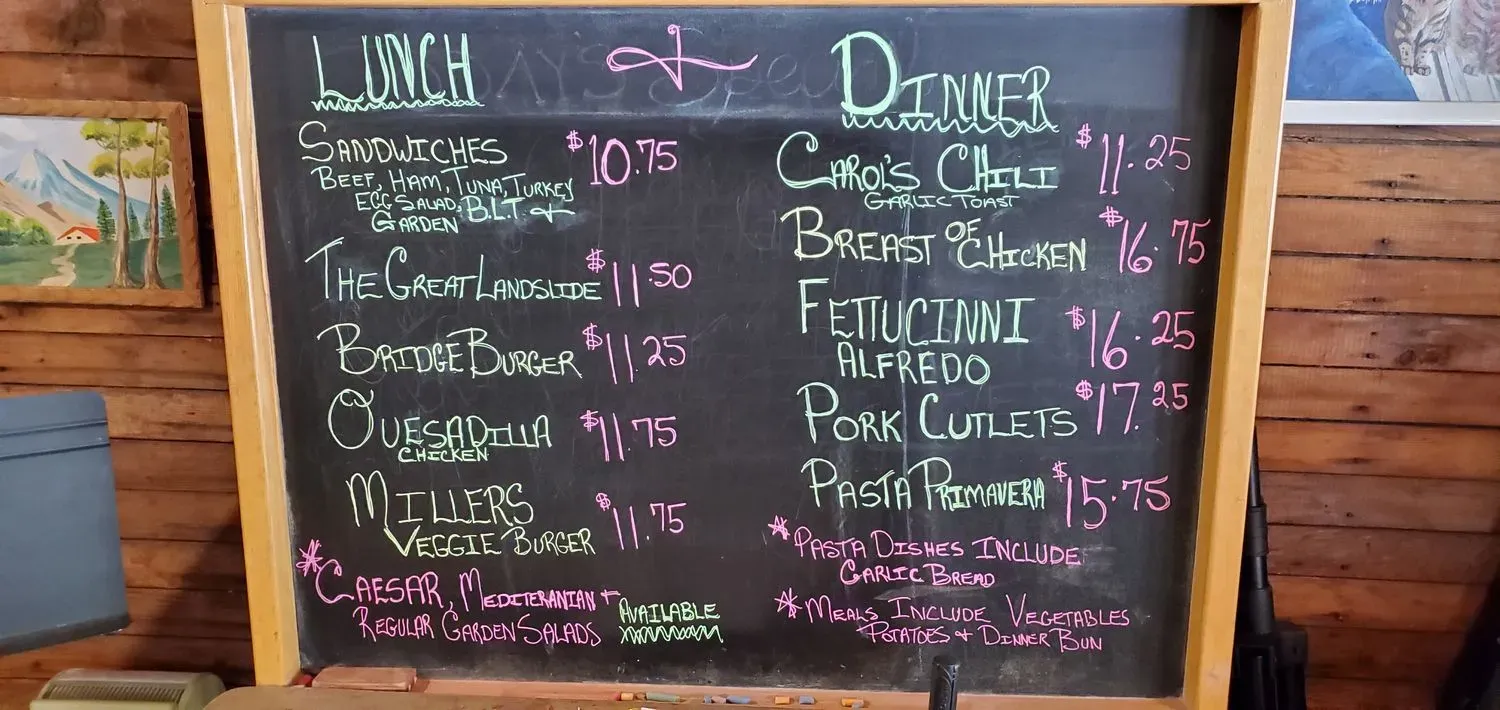 LUNCH
SANDWICHES $10.75
BEEF, HAM, TUNA, TURKEY
EGG SALAD, B.L.T. +
GARDEN
THE GREAT LANDSLIDE $11.50
BRIDGE BURGER $11.25
QUESADILLA $11.75
CHICKEN
MILLERS
VEGGIE BURGER $11.75
* CAESAR, MEDITERANIAN +
REGULAR GARDEN SALADS AVAILABLE
DINNER
CAROL'S CHILI $11.25
GARLIC TOAST
BREAST OF CHICKEN $16.75
FETTUCINNI $16.25
ALFREDO
PORK CUTLETS $17.25
PASTA PRIMAVERA $15.75
* PASTA DISHES INCLUDE
GARLIC BREAD
* MEALS INCLUDE VEGETABLES
POTATOES + DINNER BUN